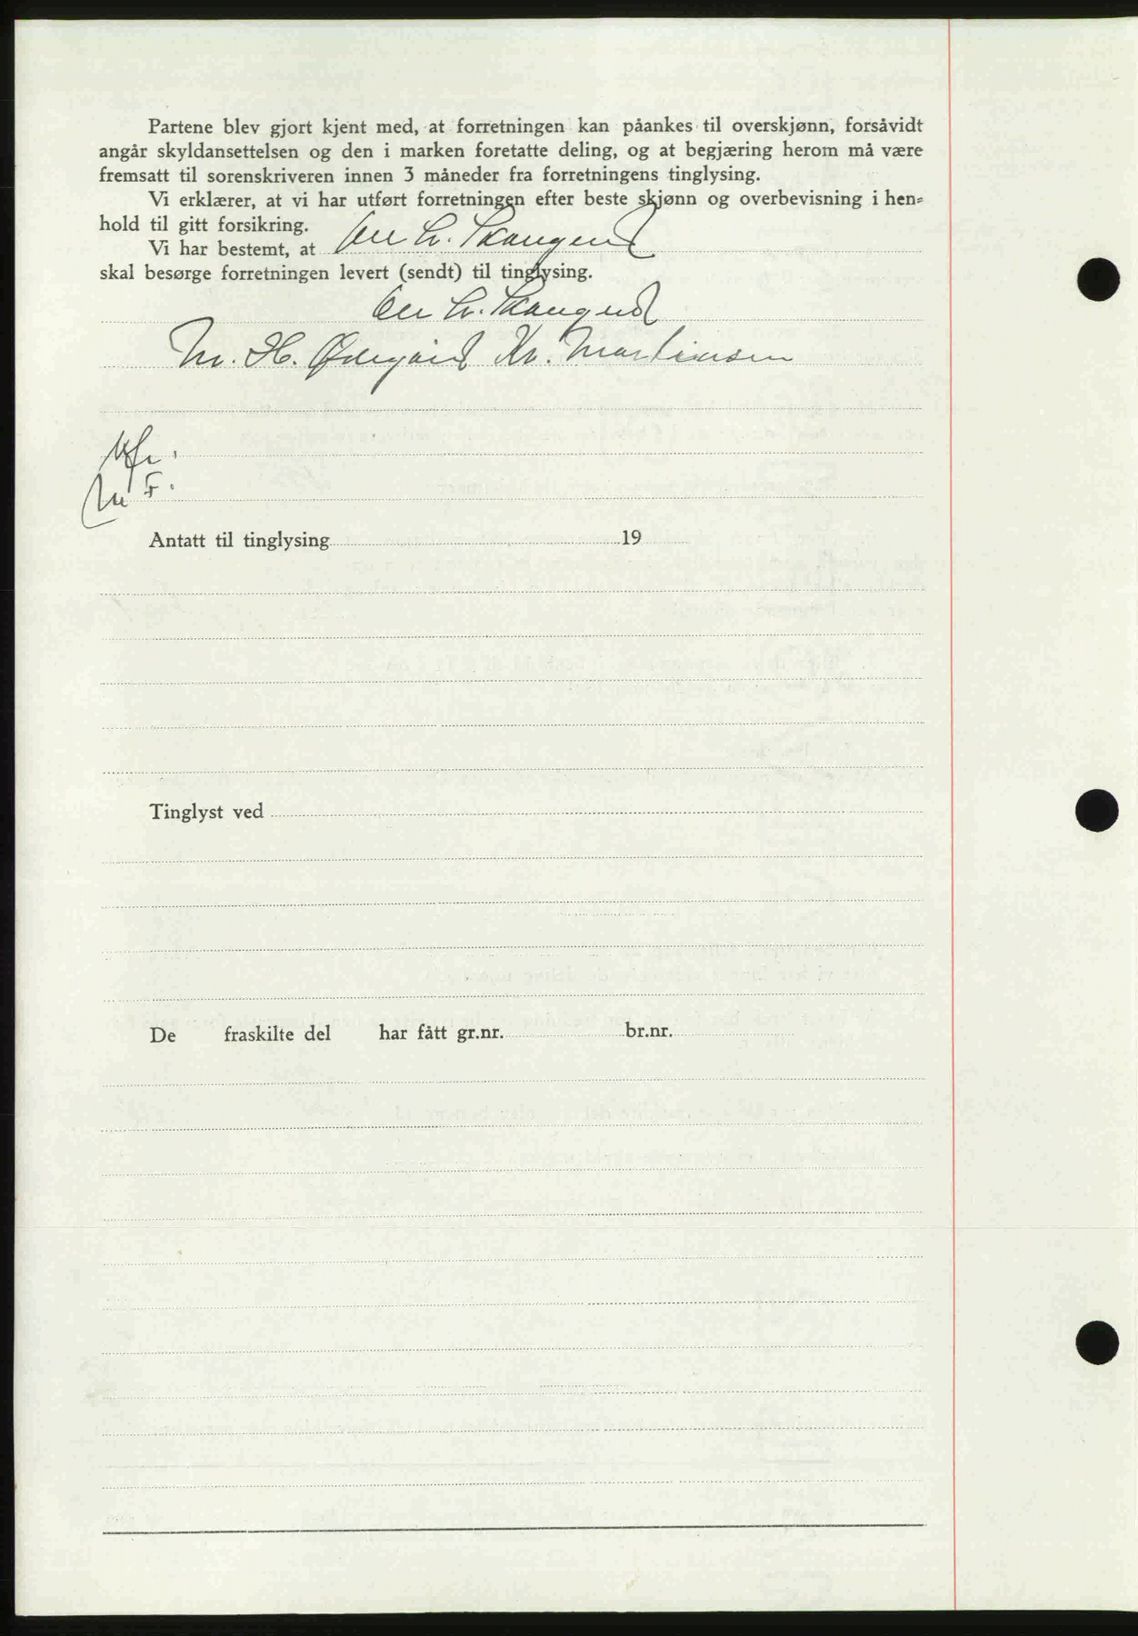 Partene blev gjort kjent med, at forretningen kan påankes til overskjønn, forsåvidt
angår skyldansettelsen og den i marken foretatte deling, og at begjæring herom må være
fremsatt til sorenskriveren innen 3 måneder fra forretningens tinglysing.
Vi erklærer, at vi har utført forretningen efter beste skjønn og overbevisning i hen-
hold til gitt forsikring.
Vi har bestemt, at
skal besørge forretningen levert (sendt) til tinglysing.
M. H. Ødegård Kr. Martinsen
Antatt til tinglysing 19
Tinglyst ved
De fraskilte del har fått gr.nr. br.nr.